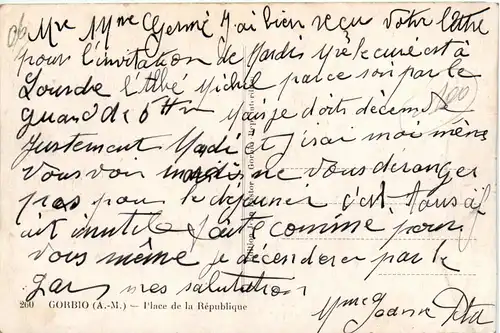 Mre Mme Germé J'ai bien reçu votre lettre
pour l'invitation de Mardis Mr le curé est à
Lourde l'Abbé Michel parce soir par le
quand de 6 H mais je doits décendre
Justement Mardi et j'irai moi même
vous voir mais ne vous déranger
pas pour le déjeuner c'est tous à
ait inutile faite comme pour
vous même je décenderer par le
Gar mes salutation
Mme Jeanne
260 GORBIO (A.-M.) — Place de la République